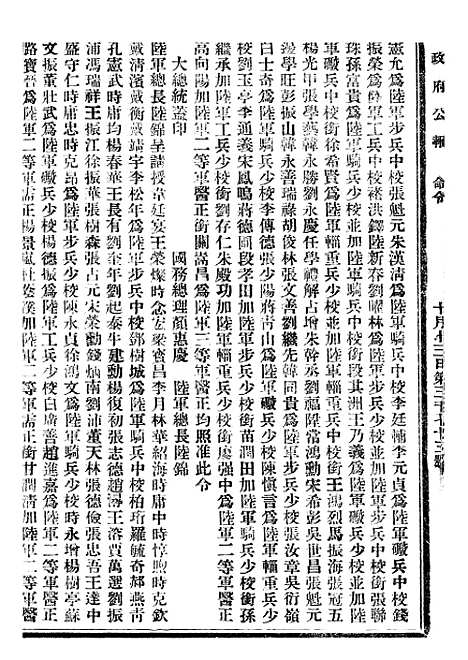 政府公報 命令
憲允爲陸軍步兵中校張魁元朱漢清爲陸軍騎兵中校李廷楠李元貞爲陸軍礮兵中校錢
振榮爲陸軍工兵中校褚洪鐸陸新春劉曜林爲陸軍步兵少校並加陸軍步兵中校銜張聯
珠孫富貴爲陸軍騎兵少校並加陸軍騎兵中校銜其洲王乃義爲陸軍礮兵少校並加陸
軍礮兵中校銜徐希賢爲陸軍輜重兵少校並加陸軍輜重兵中校銜王鴻烈馬振海張冠五
楊光甲張學藝韓永勝劉永慶任學禮解占增朱幹丞劉福陞常鴻勳宋希彭吳世昌張魁元
邊學旺彭振山韓永善瑞祿胡俊林張文善劉繼先韓同爲陸軍步兵少校張汝章吳衍嶺
白士奇爲陸軍騎兵少校李傅德張少陽蔣青山爲陸軍礮兵少校陳愼言爲陸軍輜重兵少
校劉玉亭李通義宋鳳鳴蔣德國段孝田加陸軍步兵少校銜苗潤田加陸軍騎兵少校銜孫
繼承加陸軍工兵少校銜劉存仁朱殿功加陸軍輜重兵少校銜慶强中爲陸軍二等軍醫正
高向陽加陸軍二等軍醫正銜關嵩昌爲陸軍三等軍醫正均照准此令
大總統蓋印 國務總理顔惠慶 陸軍總長陸錦
陸軍總長陸錦呈請授韋廷宴王榮燦時念安梁寶昌李月林華紹海時庸中時惇煦時克欽
戴清濱戴衡戴靖宇李松年爲陸軍步兵中校郭樹城爲陸軍騎兵中校柏珩羅毓奇郝燕青
孔憲武時庚均楊春華王長有劉奎年劉起泰牛建動楊復初張志德趙王溶賈萬選劉振
浦馮瑞祥王振江徐振華張樹森張占元宋榮勳錢炳南劉泗董天林張德儉張忠吾王達中
盛守仁時庸忠時克昂爲陸軍步兵少校陳永貞徐鴻文爲陸軍騎兵少校時永增楊樹亭蘇
文振董壯武爲陸軍礮兵少校楊德振爲陸軍工兵少校白廣善趙進嘉爲陸軍二等軍需正
路寶晉爲陸軍二等軍需正楊景嵐杜加陸軍二等軍需正銜甘潤清爲陸軍二等軍醫正